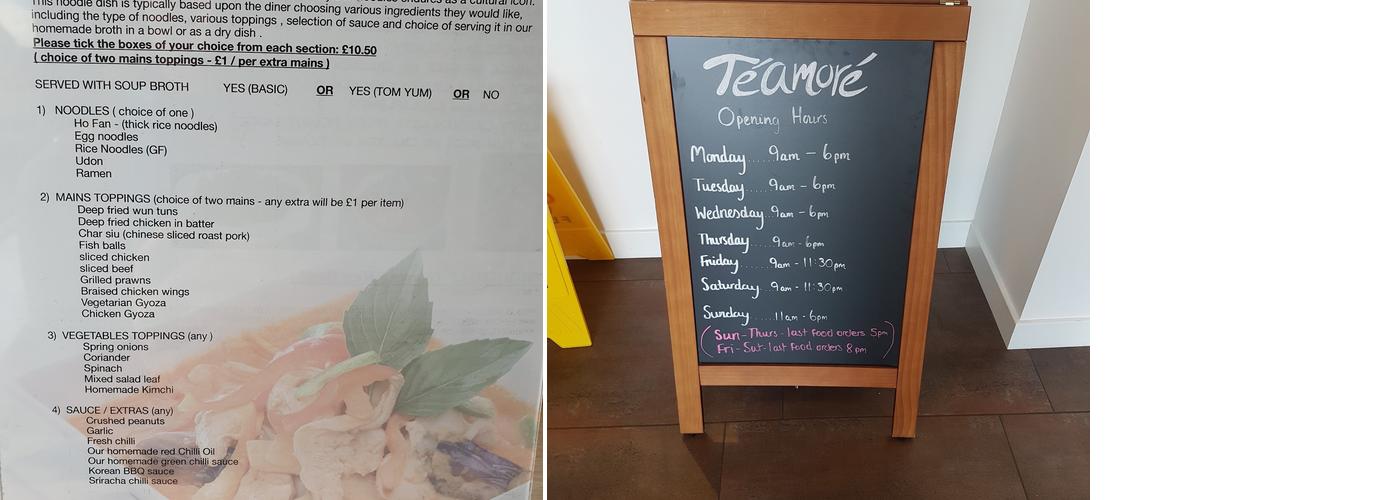 This noodle dish is typically based upon the diner choosing various ingredients they would like,
including the type of noodles, various toppings , selection of sauce and choice of serving it in our
homemade broth in a bowl or as a dry dish .
Please tick the boxes of your choice from each section: £10.50
( choice of two mains toppings - £1 / per extra mains )
SERVED WITH SOUP BROTH YES (BASIC) OR YES (TOM YUM) OR NO
1) NOODLES ( choice of one )
Ho Fan - (thick rice noodles)
Egg noodles
Rice Noodles (GF)
Udon
Ramen
2) MAINS TOPPINGS (choice of two mains - any extra will be £1 per item)
Deep fried wun tuns
Deep fried chicken in batter
Char siu (chinese sliced roast pork)
Fish balls
sliced chicken
sliced beef
Grilled prawns
Braised chicken wings
Vegetarian Gyoza
Chicken Gyoza
3) VEGETABLES TOPPINGS (any )
Spring onions
Coriander
Spinach
Mixed salad leaf
Homemade Kimchi
4) SAUCE / EXTRAS (any)
Crushed peanuts
Garlic
Fresh chilli
Our homemade red Chilli Oil
Our homemade green chilli sauce
Korean BBQ sauce
Sriracha chilli sauce
Téamoré
Opening Hours
Monday.....9am - 6pm
Tuesday.....9am - 6pm
Wednesday..9am - 6pm
Thursday.....9am - 6pm
Friday.......9am - 11:30pm
Saturday...9am - 11:30pm
Sunday.....11am - 6pm
(Sun - Thurs - last food orders 5pm
Fri - Sat - last food orders 8pm)